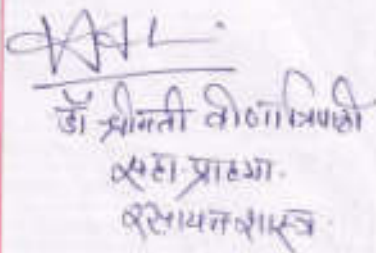 डॉ श्रीमती वीणा त्रिपाठी
सहा. प्राध्या.
रसायन शास्त्र